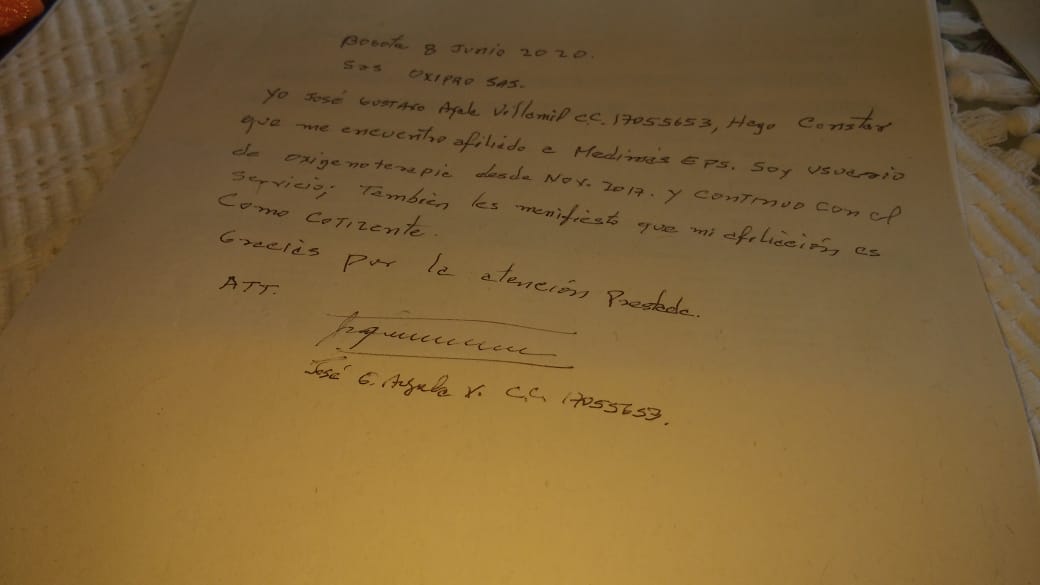 Bogota 8 Junio 2020.
Sres OXIPRO SAS.
Yo José Gustavo Ayala Villamil C.C. 17055653, Hago Constar
que me encuentro afiliado a Medimás EPS. Soy usuario
de oxigenoterapia desde Nov. 2017. y continuo con el
Servicio; También les manifiesto que mi afiliación es
Como Cotizante.
Gracias por la atención Prestada.
ATT.
José G. Ayala V. C.C. 17055653.